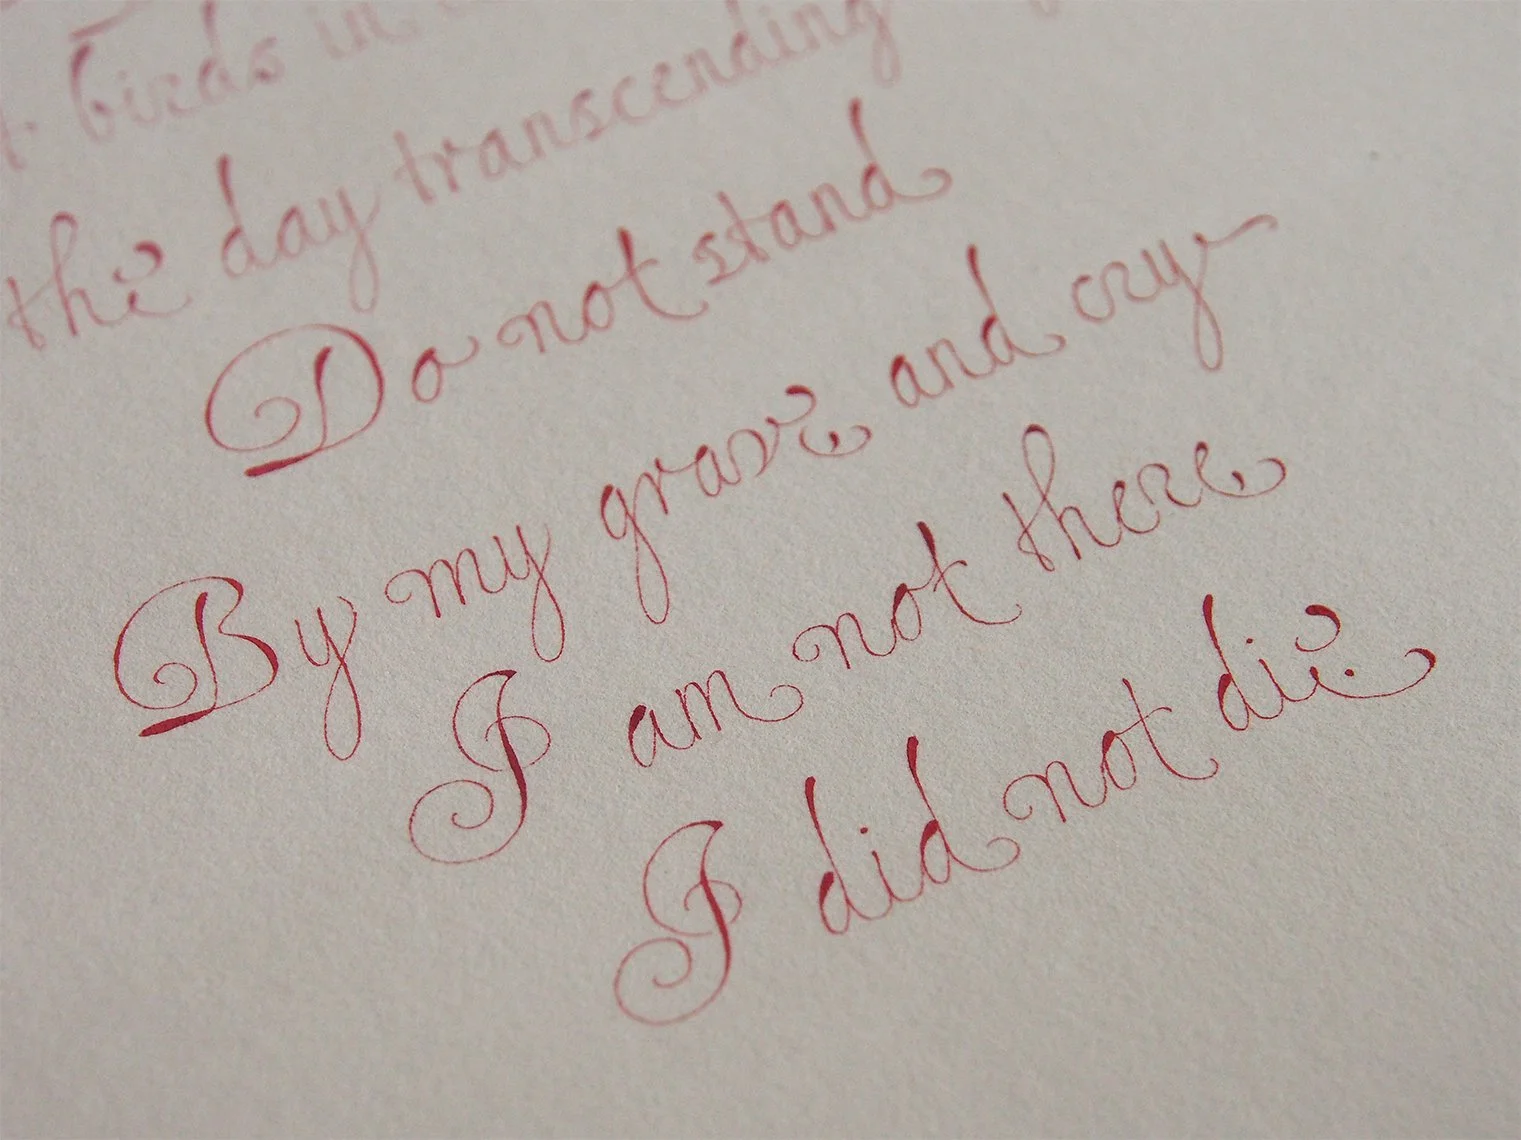 birds in
the day transcending
Do not stand
By my grave and cry
I am not there
I did not die